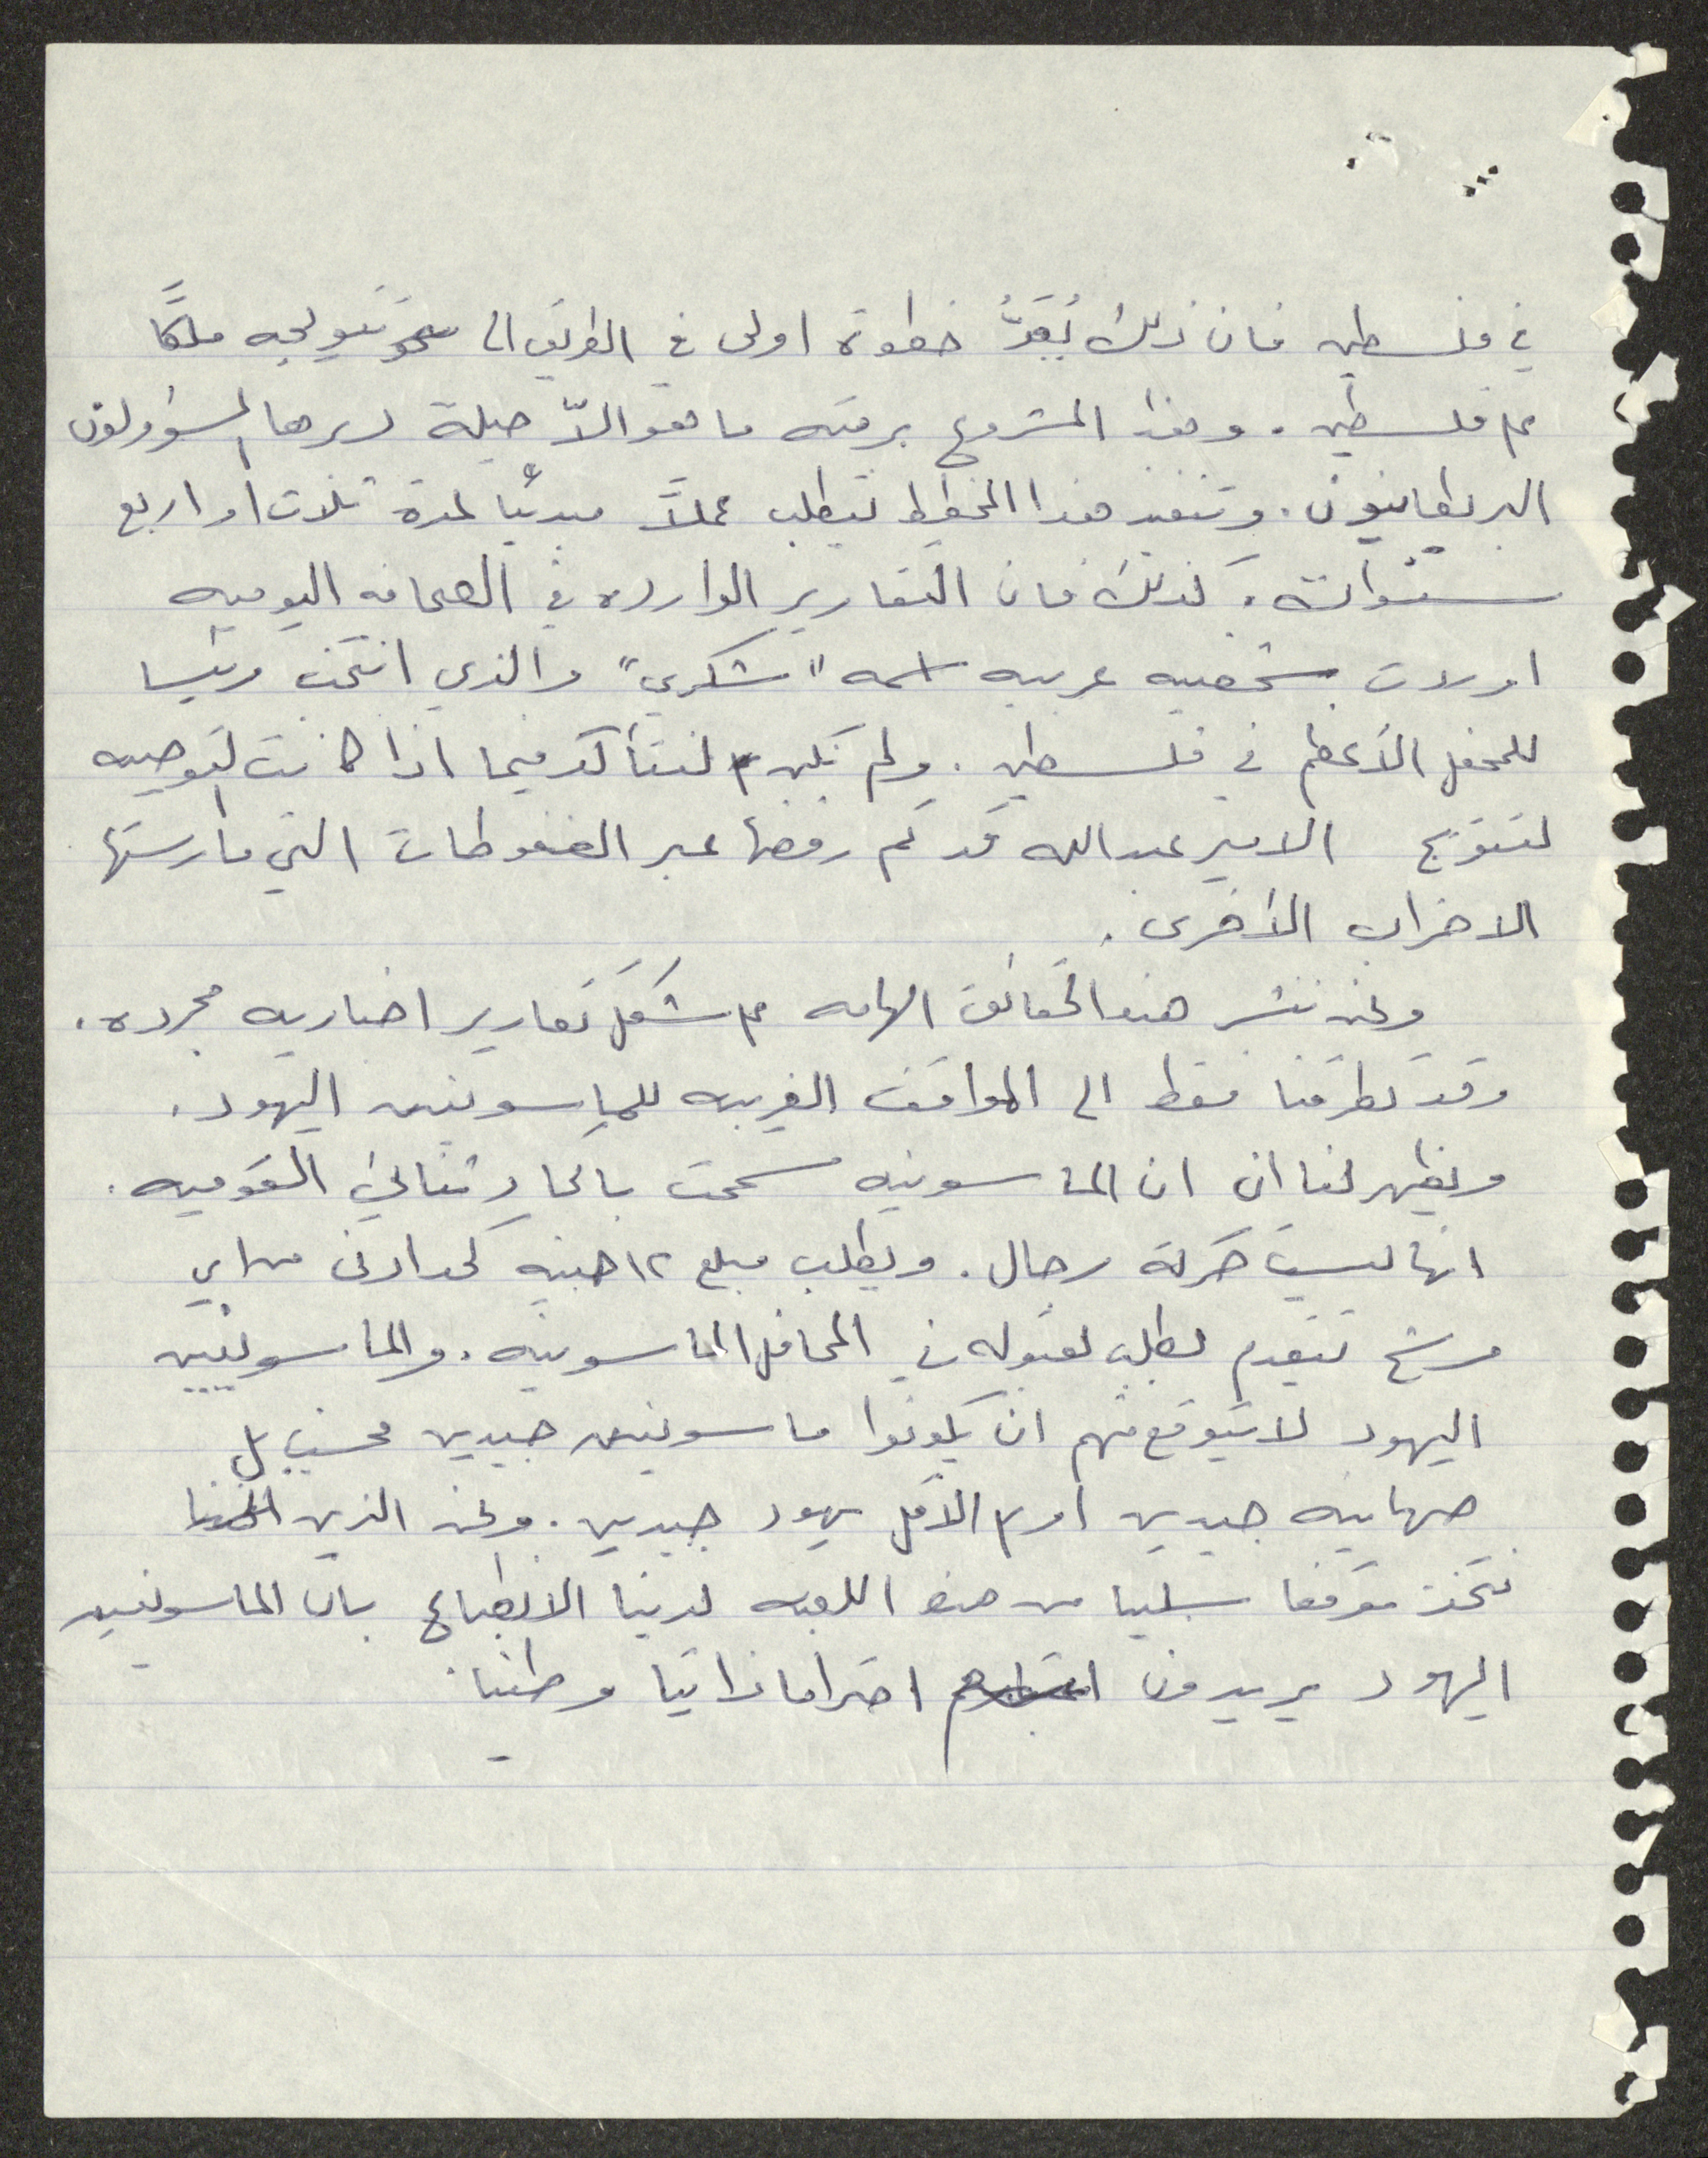 في فلسطين فان ذلك يُعَدُّ خطوة اولى في الطريق الى نحو تتويجه ملكًا
على فلسطين . وهذا المشروع برمته ما هو الاّ حيلة دبرها المسؤولون
البريطانيون . وتنفيذ هذا المخطط يتطلب عملاً مبدئيا لمدة ثلاث او اربع
سنوات . كذلك فان التقارير الوارده في الصحافه اليوميه
اوردت شخصيه عربيه اسمه "شكري" والذي انتخب رئيسا
للمحفل الأعظم في فلسطين . ولم نكن لنتأكد فيما اذا كانت التوصيه
لتتويج الامير عبدالله قد تم رفضها عبر الضغوطات التي مارستها
الاحزاب الأخرى .
ونحن ننشر هذه الحقائق الهامه على شكل تقارير اخباريه مجرده .
وقد تطرقنا فقط الى المواقف الغريبه للماسونيين اليهود .
ويظهر لنا ان ان الماسونيه سمحت باتحاد ثنائي القوميه .
انها ليست حركة رجال . ويطلب مبلغ ١٢ جنيه كحد ادنى من اي
مرشح يتقدم بطلب لقبوله في المحافل الماسونيه . والماسونيين
اليهود لا يتوقع منهم ان يكونوا ماسونيين جيدين فحسب بل
صهاينه جيدين او على الأقل يهود جيدين . ونحن الذين
نتخذ موقفا سلبيا من هذه اللعبه لدينا الانطباع بان الماسونيين
اليهود يريدون احتراما ذاتيا وطنيا .